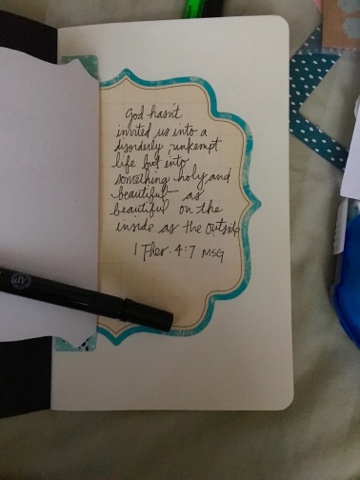 God hasn't
invited us into a
disorderly, unkempt
life but into
something holy and
beautiful - as
beautiful on the
inside as the outside
1 Thes. 4:7 MSG